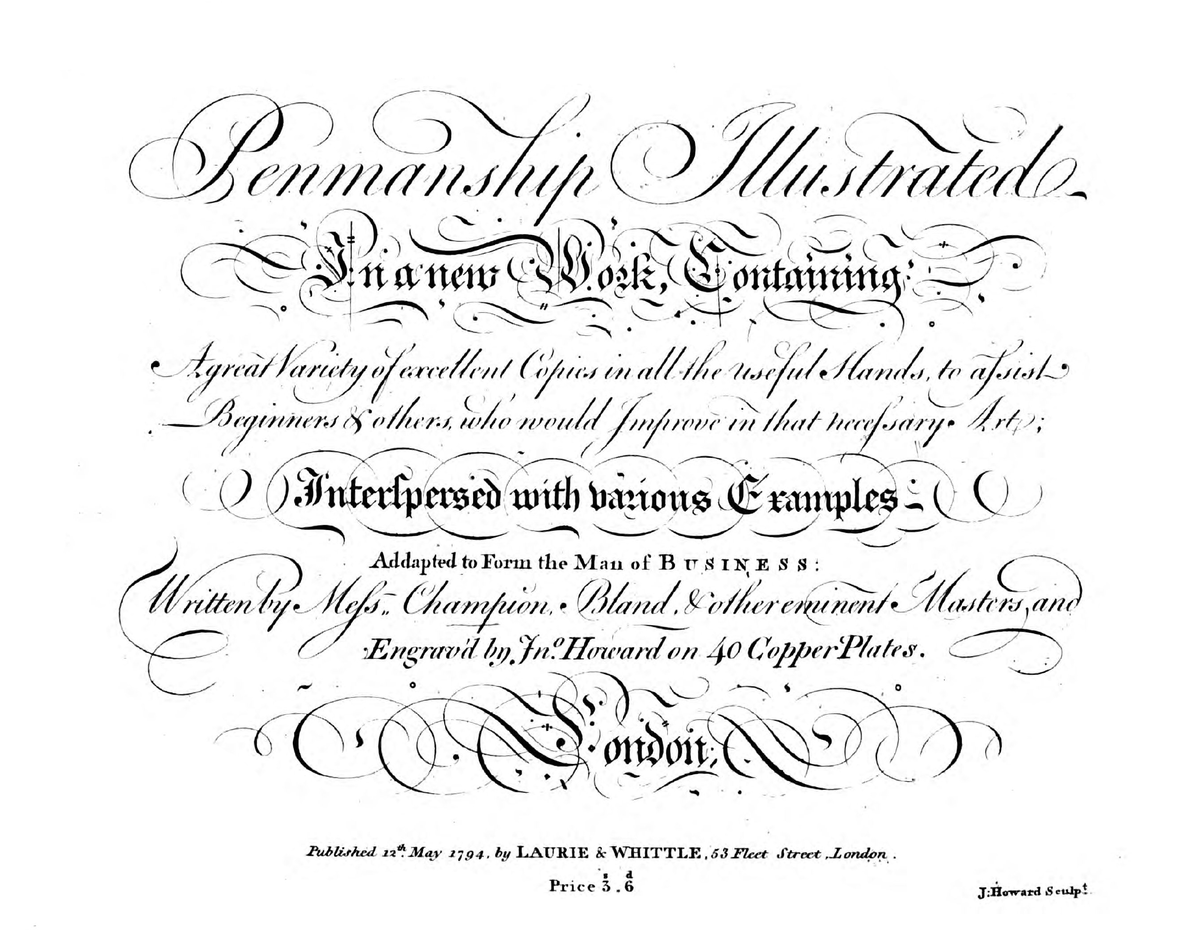 Penmanship Illustrated
In a new Work, Containing
A great Variety of excellent Copies in all the useful Hands, to aſsist
Beginners & others, who would Improve in that neceſsary Art;
Interſpersed with various Examples
Addapted to Form the Man of BUSINESS:
Written by Meſs.rs Champion, Bland, & other eminent Masters, and
Engrav'd by Jno. Howard on 40 Copper Plates.
London;
Published 12th. May 1794, by LAURIE & WHITTLE, 53 Fleet Street, London.
Price 3s. 6d
J: Howard Sculpt.